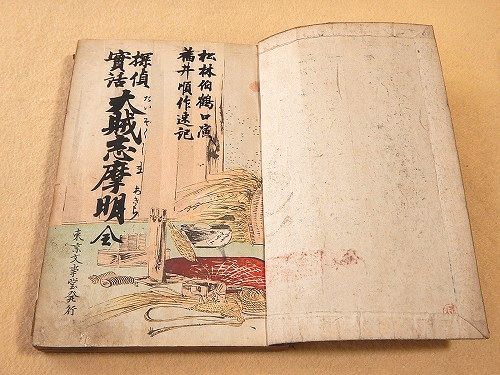 松林伯鶴口演
福井順作速記
探偵
實話
大賊志摩明
だいぞくしまあきら
全
東京文事堂發行